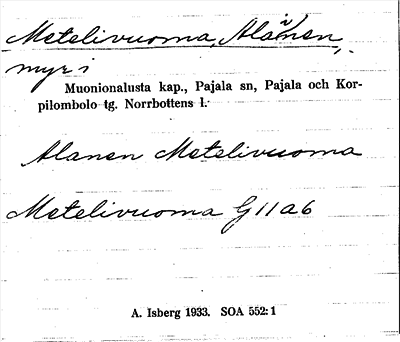 Metelivuoma, Alanen,
myr i
Muonionalusta kap., Pajala sn, Pajala och Kor-
pilombolo tg. Norrbottens l.
Alanen Metelivuoma
Metelivuoma G 11 a 6
A. Isberg 1933. SOA 552:1